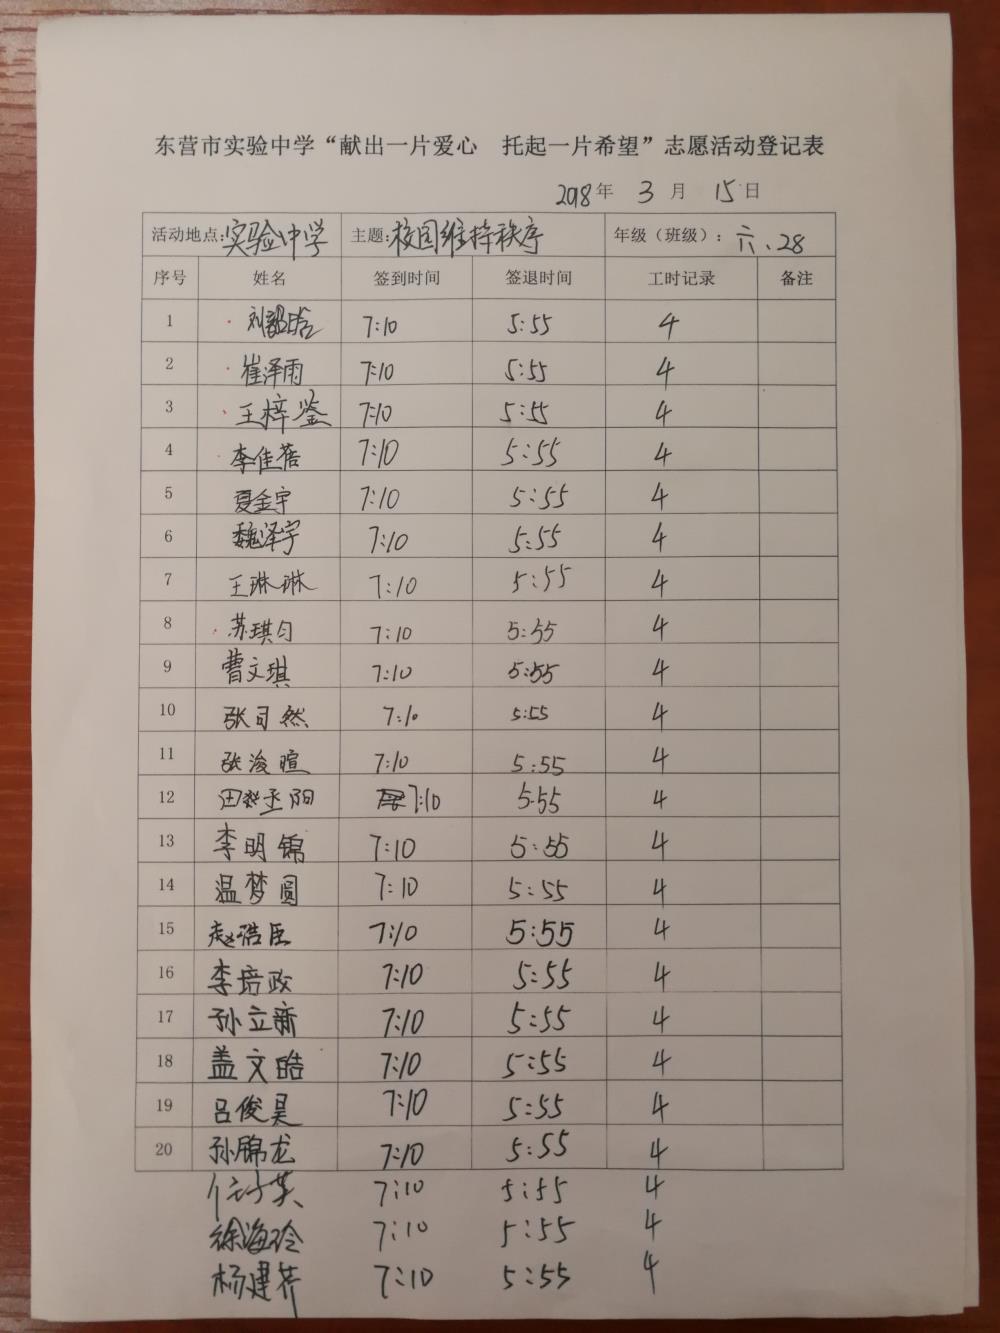 东营市实验中学“献出一片爱心 托起一片希望”志愿活动登记表
2018年 3月 15日
活动地点:实验中学 主题:校园维持秩序 年级（班级）：六、28
序号 姓名 签到时间 签退时间 工时记录 备注
1 刘韶晗 7:10 5:55 4
2 崔泽雨 7:10 5:55 4
3 王梓鉴 7:10 5:55 4
4 李佳蓓 7:10 5:55 4
5 夏金宇 7:10 5:55 4
6 魏泽宇 7:10 5:55 4
7 王琳琳 7:10 5:55 4
8 苏琪匀 7:10 5:55 4
9 曹文琪 7:10 5:55 4
10 张可然 7:10 5:55 4
11 张浚暄 7:10 5:55 4
12 7:10 5:55 4
13 李明锦 7:10 5:55 4
14 温梦圆 7:10 5:55 4
15 赵浩臣 7:10 5:55 4
16 李培政 7:10 5:55 4
17 孙立新 7:10 5:55 4
18 盖文皓 7:10 5:55 4
19 吕俊昊 7:10 5:55 4
20 孙锦龙 7:10 5:55 4
任子英 7:10 5:55 4
徐海玲 7:10 5:55 4
杨建芹 7:10 5:55 4